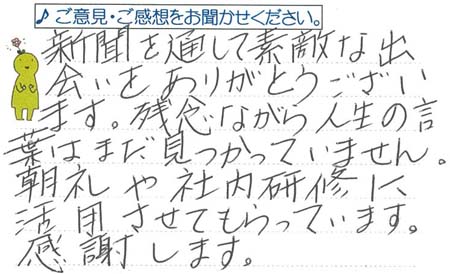 ♪ご意見・ご感想をお聞かせください。
新聞を通して素敵な出
会いをありがとうござい
ます。残念ながら人生の言
葉はまだ見つかっていません。
朝礼や社内研修に
活用させてもらっています。
感謝します。